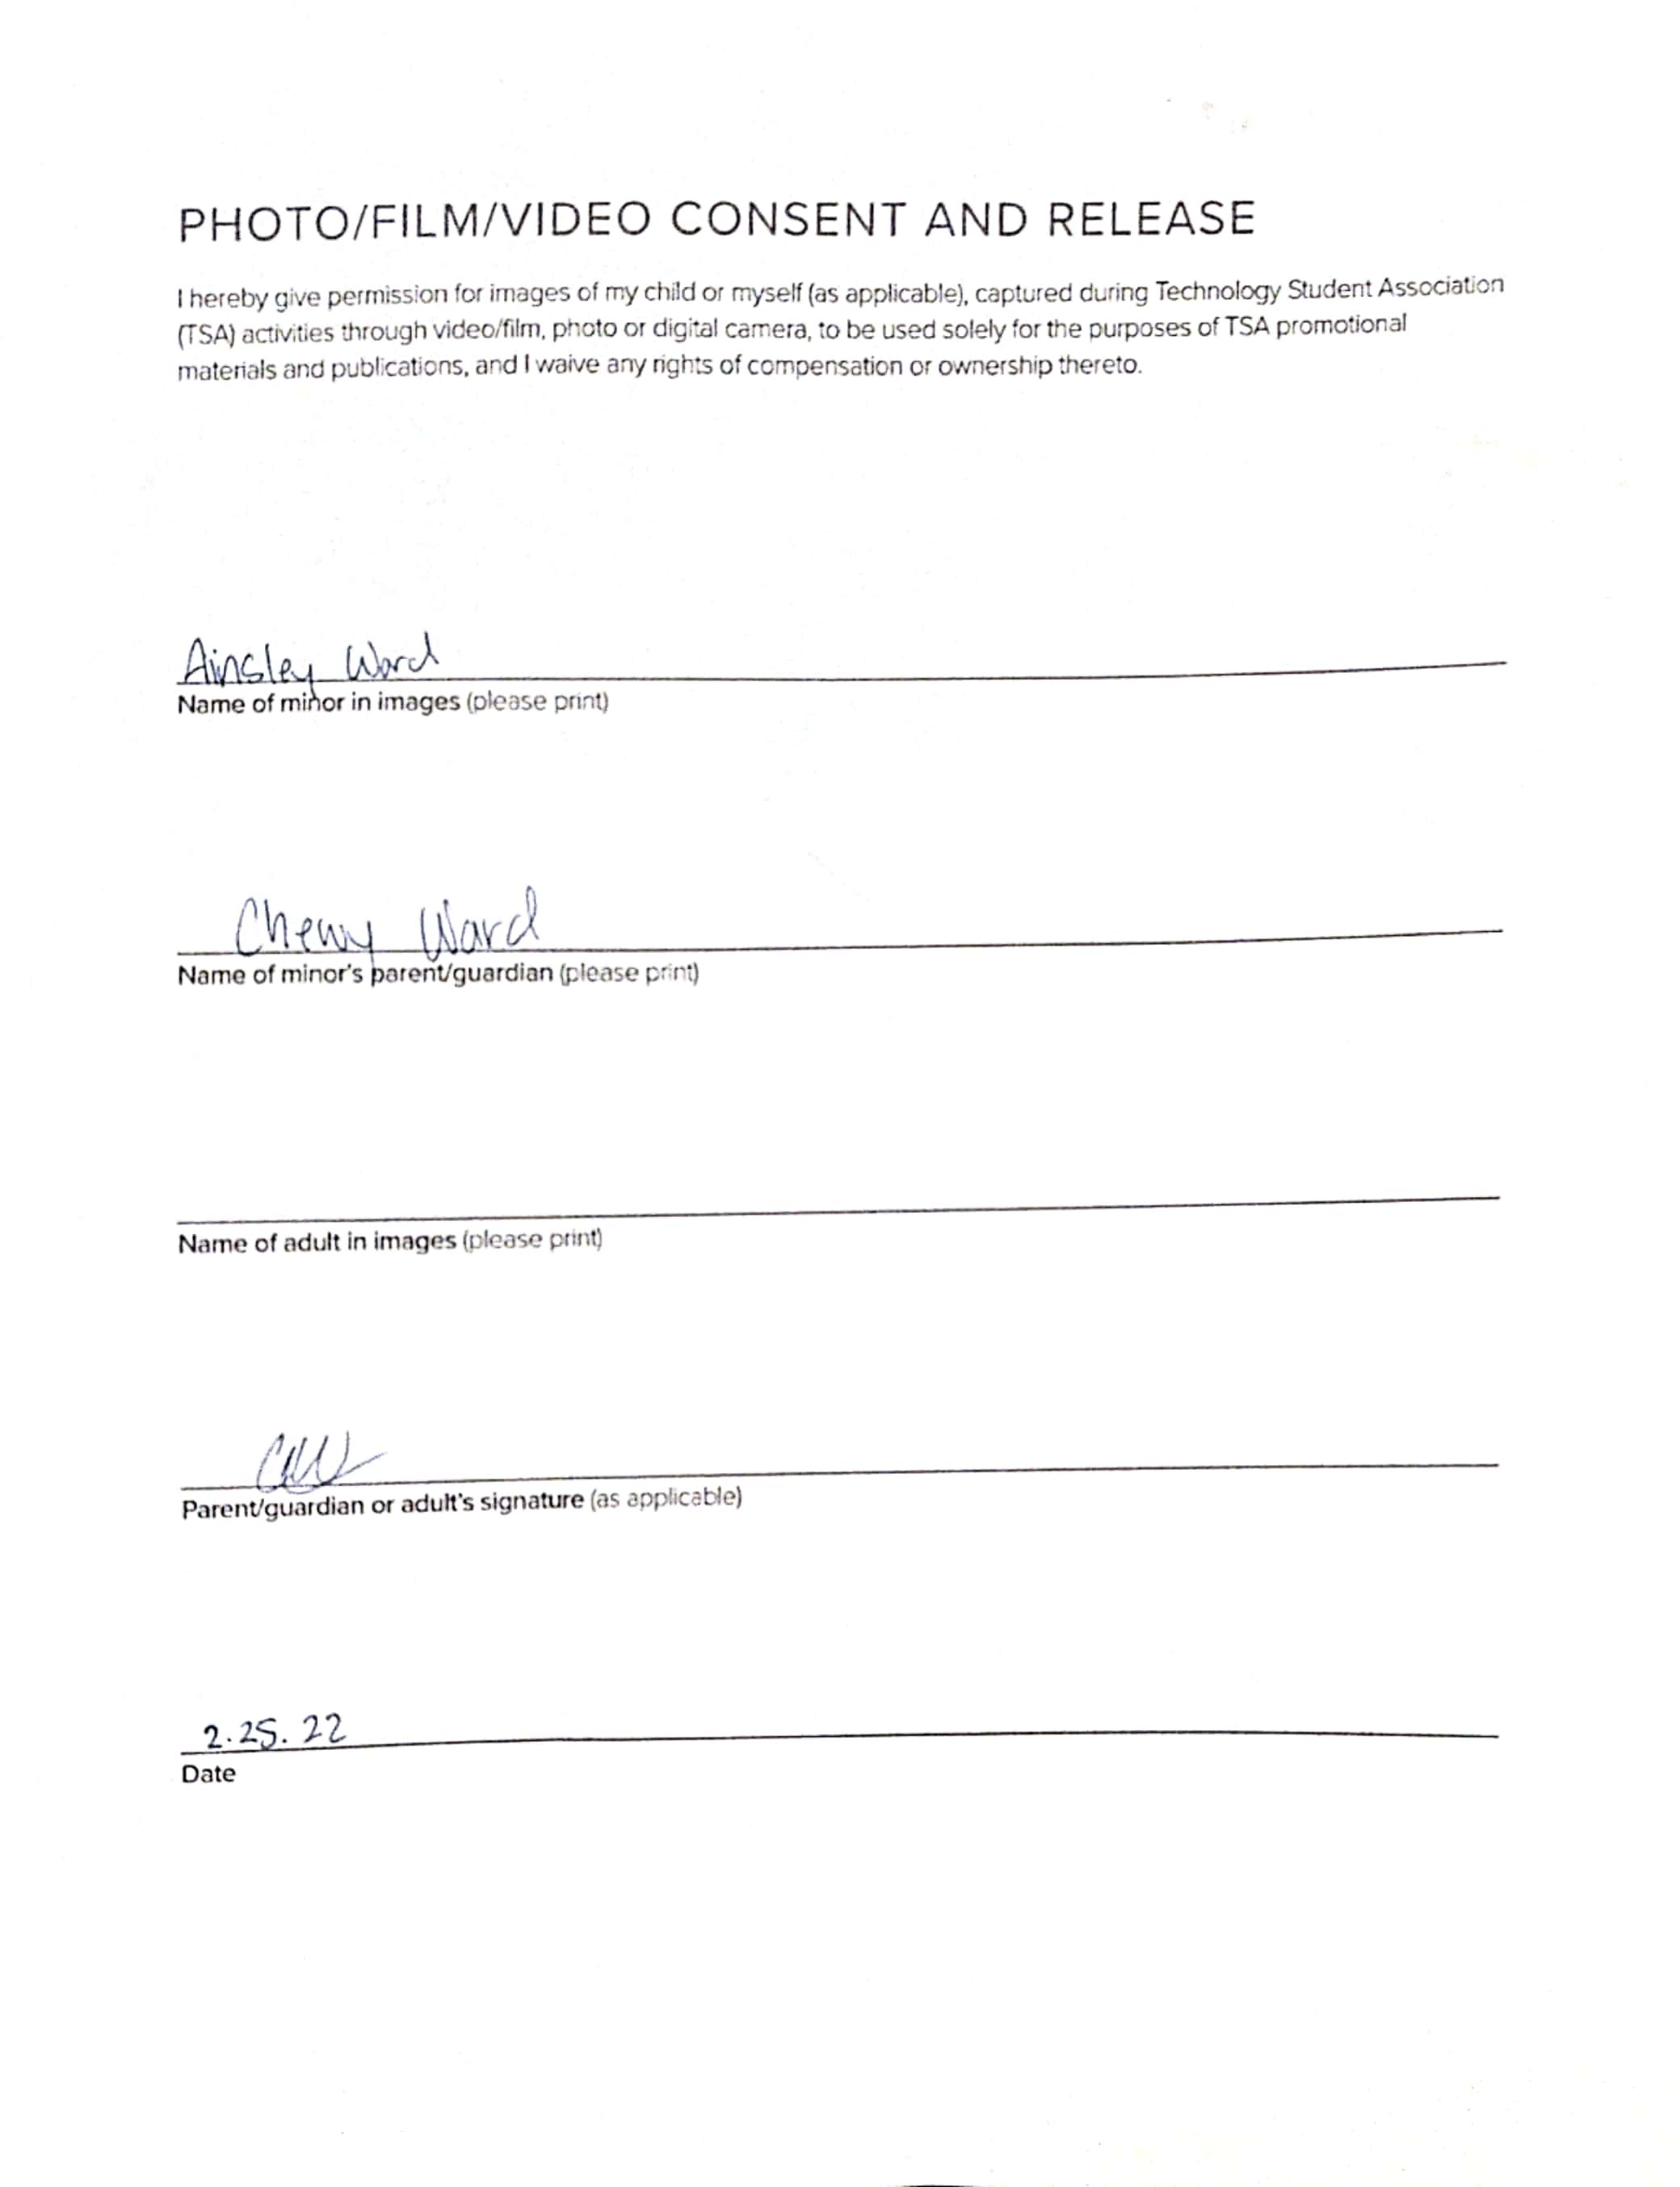 PHOTO/FILM/VIDEO CONSENT AND RELEASE
I hereby give permission for images of my child or myself (as applicable), captured during Technology Student Association
(TSA) activities through video/film, photo or digital camera, to be used solely for the purposes of TSA promotional
materials and publications, and I waive any rights of compensation or ownership thereto.
Ainsley Ward
Name of minor in images (please print)
Ward
Name of minor's parent/guardian (please print)
Name of adult in images (please print)
Parent/guardian or adult's signature (as applicable)
2.25.22
Date